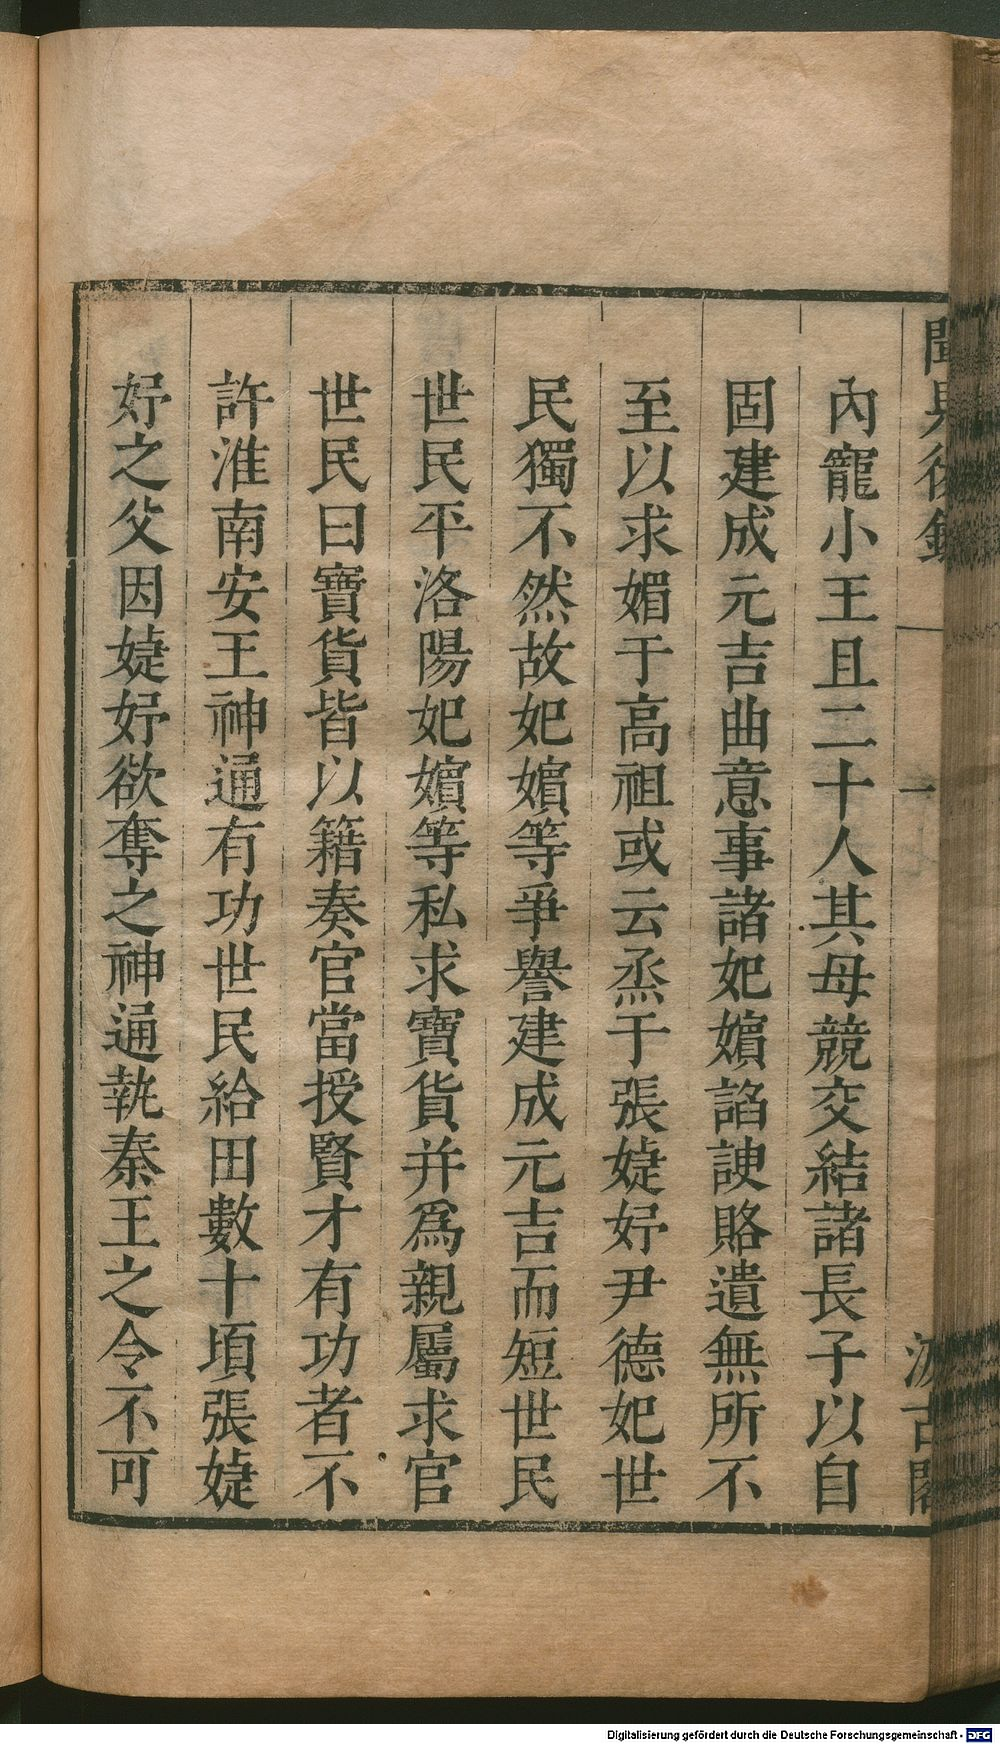 聞見後錄 一 汲古閣
內寵小王且二十人其母競交結諸長子以自
固建成元吉曲意事諸妃嬪諂諛賂遺無所不
至以求媚于高祖或云烝于張婕妤尹德妃世
民獨不然故妃嬪等爭譽建成元吉而短世民
世民平洛陽妃嬪等私求寶貨并爲親屬求官
世民曰寶貨皆以籍奏官當授賢才有功者不
許淮南安王神通有功世民給田數十頃張婕
妤之父因婕妤欲奪之神通執秦王之令不可
Digitalisierung gefördert durch die Deutsche Forschungsgemeinschaft - DFG